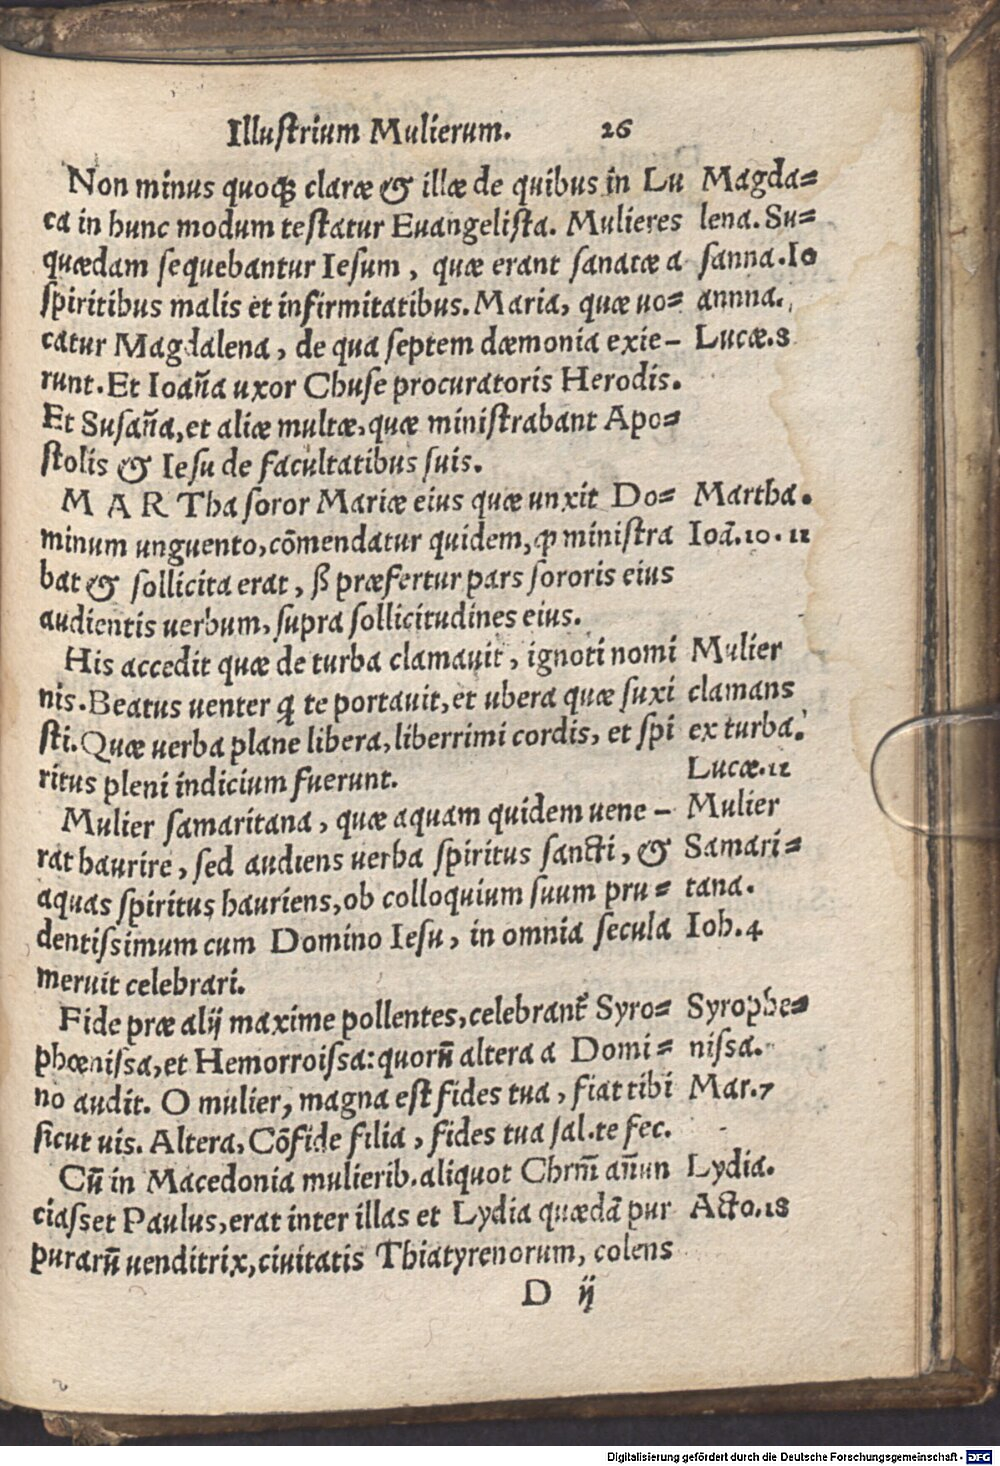 Illustrium Mulierum. 26
Non minus quoq́; claræ & illæ de quibus in Lu
ca in hunc modum testatur Euangelista. Mulieres
quædam sequebantur Iesum, quæ erant sanatæ a
spiritibus malis et infirmitatibus. Maria, quæ uo=
catur Magdalena, de qua septem dæmonia exie-
runt. Et Ioan̄a uxor Chuse procuratoris Herodis.
Et Susan̄a, et aliæ multæ, quæ ministrabant Apo=
stolis & Iesu de facultatibus suis.
Magda=
lena. Su=
sanna. Io
annna.
Lucæ. 8
MARTha soror Mariæ eius quæ unxit Do=
minum unguento, cōmendatur quidem, ꝙ ministra
bat & sollicita erat, ß præfertur pars sororis eius
audientis uerbum, supra sollicitudines eius.
Martha.
Ioā. 10. 11
His accedit quæ de turba clamauit, ignoti nomi
nis. Beatus uenter q̄ te portauit, et ubera quæ suxi
sti. Quæ uerba plane libera, liberrimi cordis, et spi
ritus pleni indicium fuerunt.
Mulier
clamans
ex turba.
Lucæ. 11
Mulier samaritana, quæ aquam quidem uene-
rat haurire, sed audiens uerba spiritus sancti, &
aquas spiritus hauriens, ob colloquium suum pru=
dentissimum cum Domino Iesu, in omnia secula
meruit celebrari.
Mulier
Samari=
tana.
Ioh. 4
Fide præ alij maxime pollentes, celebrant᷑ Syro=
phœnissa, et Hemorroissa: quorū altera a Domi=
no audit. O mulier, magna est fides tua, fiat tibi
sicut uis. Altera, Cōfide filia, fides tua sal. te fec.
Syrophe=
nissa.
Mar. 7
Cū in Macedonia mulierib. aliquot Chrm̄ an̄un
ciasset Paulus, erat inter illas et Lydia quædā pur
purarū uenditrix, ciuitatis Thiatyrenorum, colens
Lydia.
Acto. 18
D ij
Digitalisierung gefördert durch die Deutsche Forschungsgemeinschaft - DFG